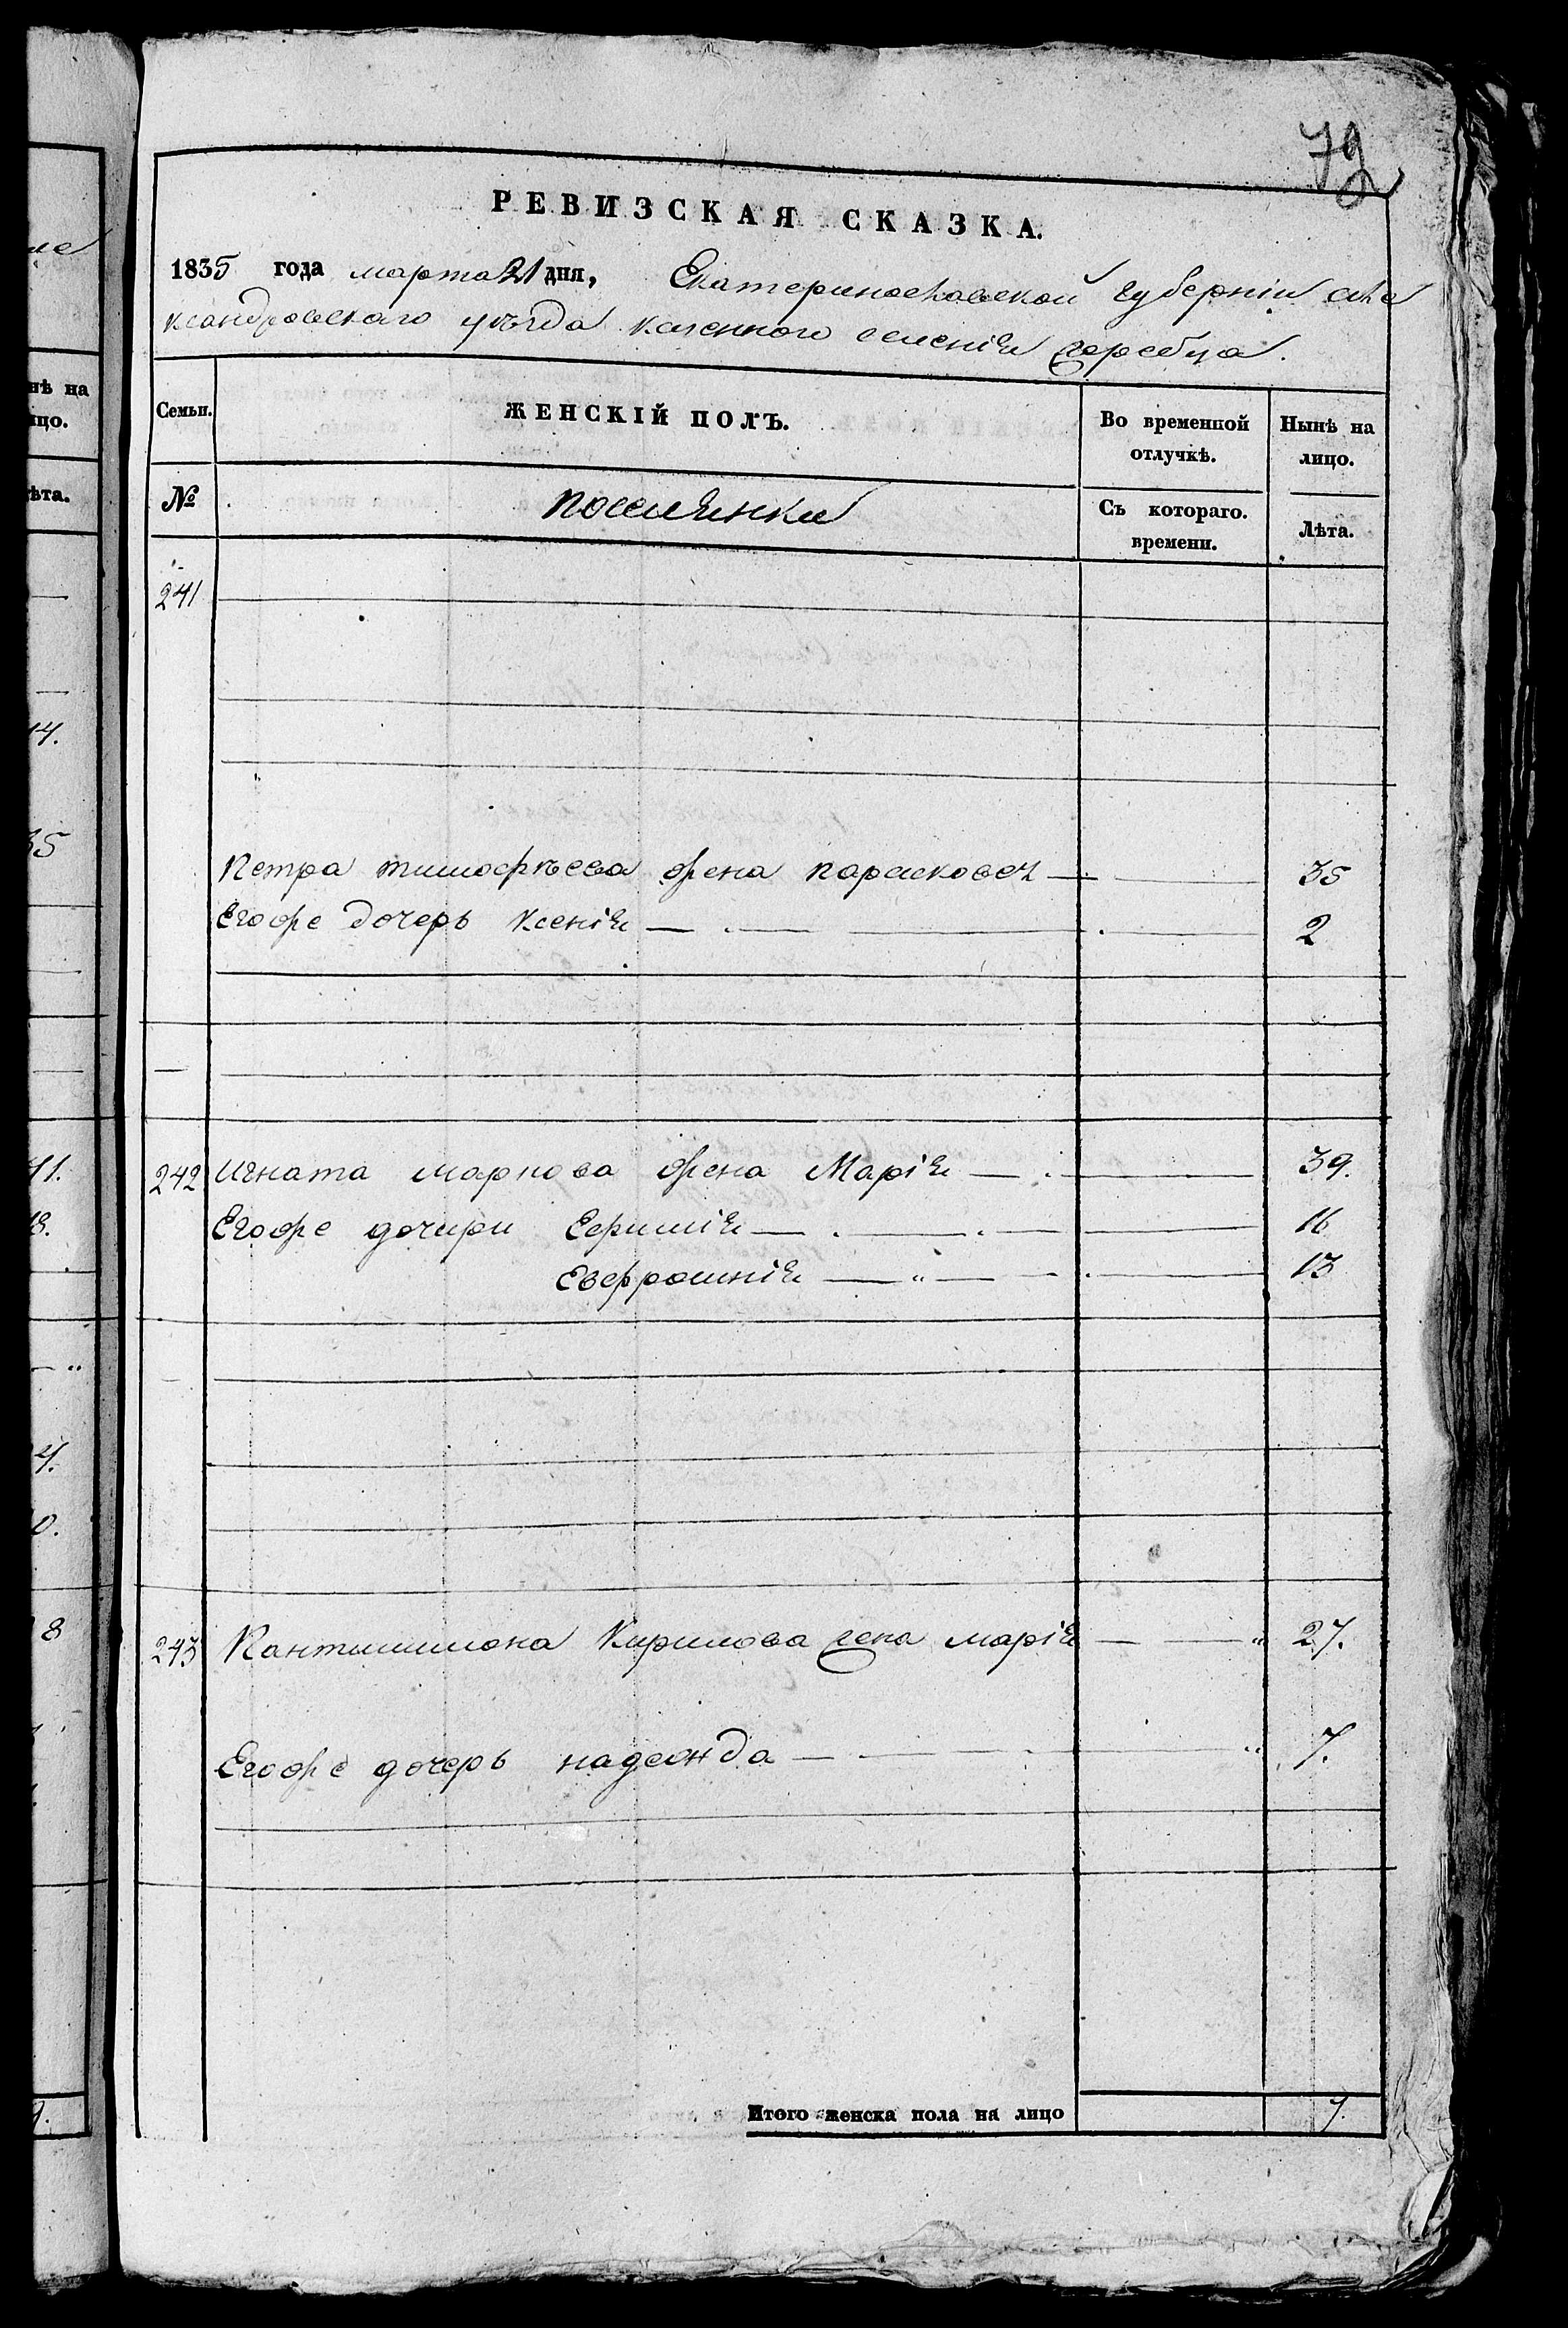 79
РЕВИЗСКАЯ СКАЗКА.
1835 года марта 21 дня, Екатеринославской губерніи але
ксандровскаго уѣзда казенного селенія жеребца.
Семьи. ЖЕНСКІЙ ПОЛЪ. Во временной отлучкѣ. Нынѣ на лицо.
№ поселянки Съ котораго. времени. Лѣта.
241
Петра тимофѣева жена парасковея 35
Егоже дочерь Ксенія 2
242 Игната маркова жена Марія 39.
Егоже дочири Ефимія 16
Евфросинія 13
243 Пантилимона Кирилова жена марія 27.
Егоже дочерь надежда 7.
Итого женска пола на лицо 7.